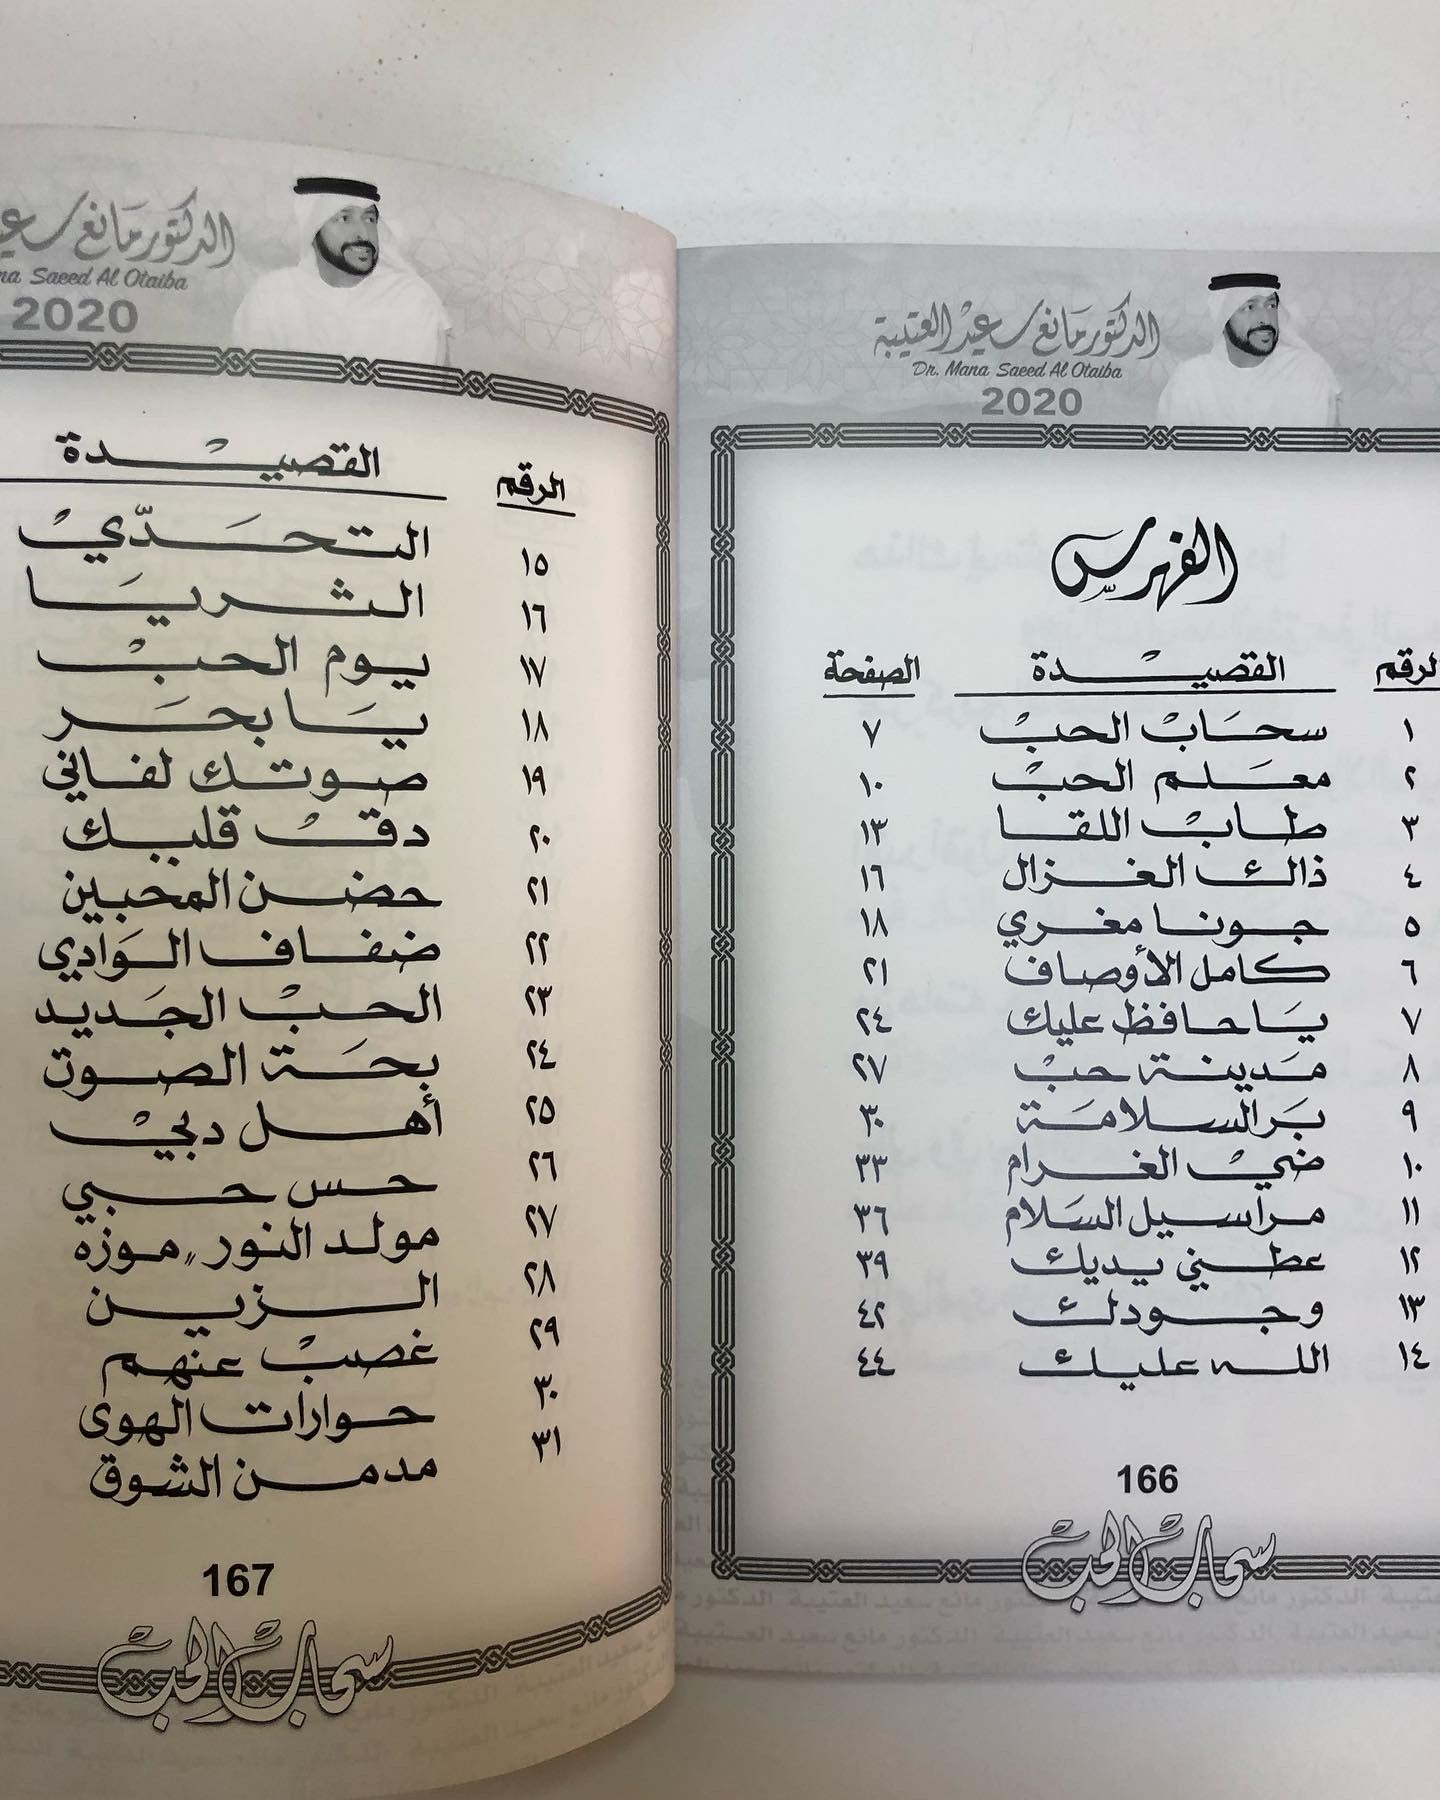 الدكتور مانع سعيد العتيبة
Dr. Mana Saeed Al Otaiba
2020
الفهرس
الرقم القصيدة الصفحة
١ سحاب الحب ٧
٢ معلم الحب ١٠
٣ طاب اللقا ١٣
٤ ذاك الغزال ١٦
٥ جونا مغري ١٨
٦ كامل الأوصاف ٢١
٧ يا حافظ عليك ٢٤
٨ مدينة حب ٢٧
٩ بر السلامة ٣٠
١٠ ضي الغرام ٣٣
١١ مراسيل السلام ٣٦
١٢ عطني يديك ٣٩
١٣ وجودك ٤٢
١٤ الله عليك ٤٤
166
سحاب الحب
الدكتور مانع سعيد
Saeed Al Otaiba
2020
الرقم القصيدة
١٥ التحدّي
١٦ الثريا
١٧ يوم الحب
١٨ يا بحر
١٩ صوتك لفاني
٢٠ دق قلبك
٢١ حضن المحبين
٢٢ ضفاف الوادي
٢٣ الحب الجديد
٢٤ بحة الصوت
٢٥ أهل دبي
٢٦ حس حبي
٢٧ مولد النور "موزه
٢٨ الزين
٢٩ غصب عنهم
٣٠ حوارات الهوى
٣١ مدمن الشوق
167
سحاب الحب